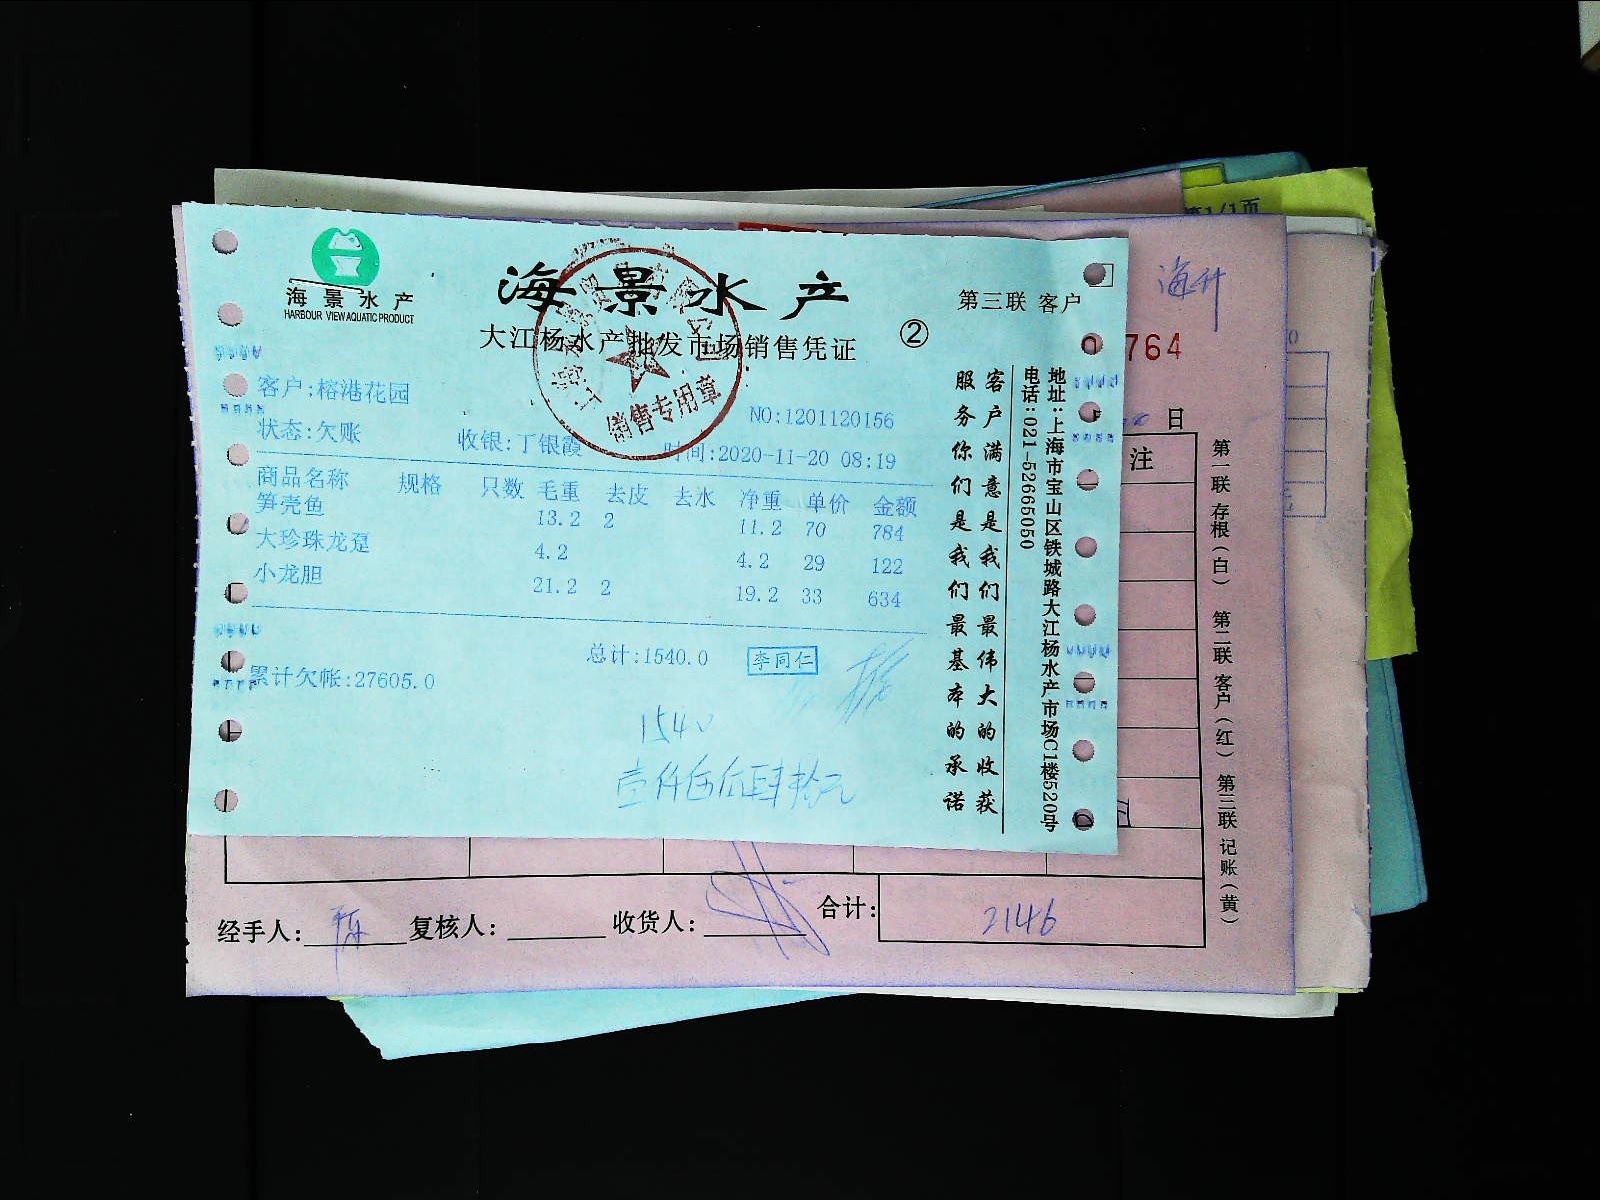 海景水产
HARBOUR VIEW AQUATIC PRODUCT
海景水产
大江杨水产批发市场销售凭证
②
第三联 客户
销售专用章
客户:榕港花园
NO:1201120156
状态:欠账
收银:丁银霞
时间:2020-11-20 08:19
商品名称 规格 只数 毛重 去皮 去水 净重 单价 金额
笋壳鱼 13.2 2 11.2 70 784
大珍珠龙趸 4.2 4.2 29 122
小龙胆 21.2 2 19.2 33 634
总计:1540.0
李同仁
累计欠帐:27605.0
1540
壹仟伍佰肆拾元
客户满意是我们最伟大的收获
服务你们是我们最基本的承诺
地址:上海市宝山区铁城路大江杨水产市场C1楼520号
电话:021-52665050
第1/1页
764
日
注
第一联 存根(白) 第二联 客户(红) 第三联 记账(黄)
经手人: 复核人: 收货人: 合计: 2146